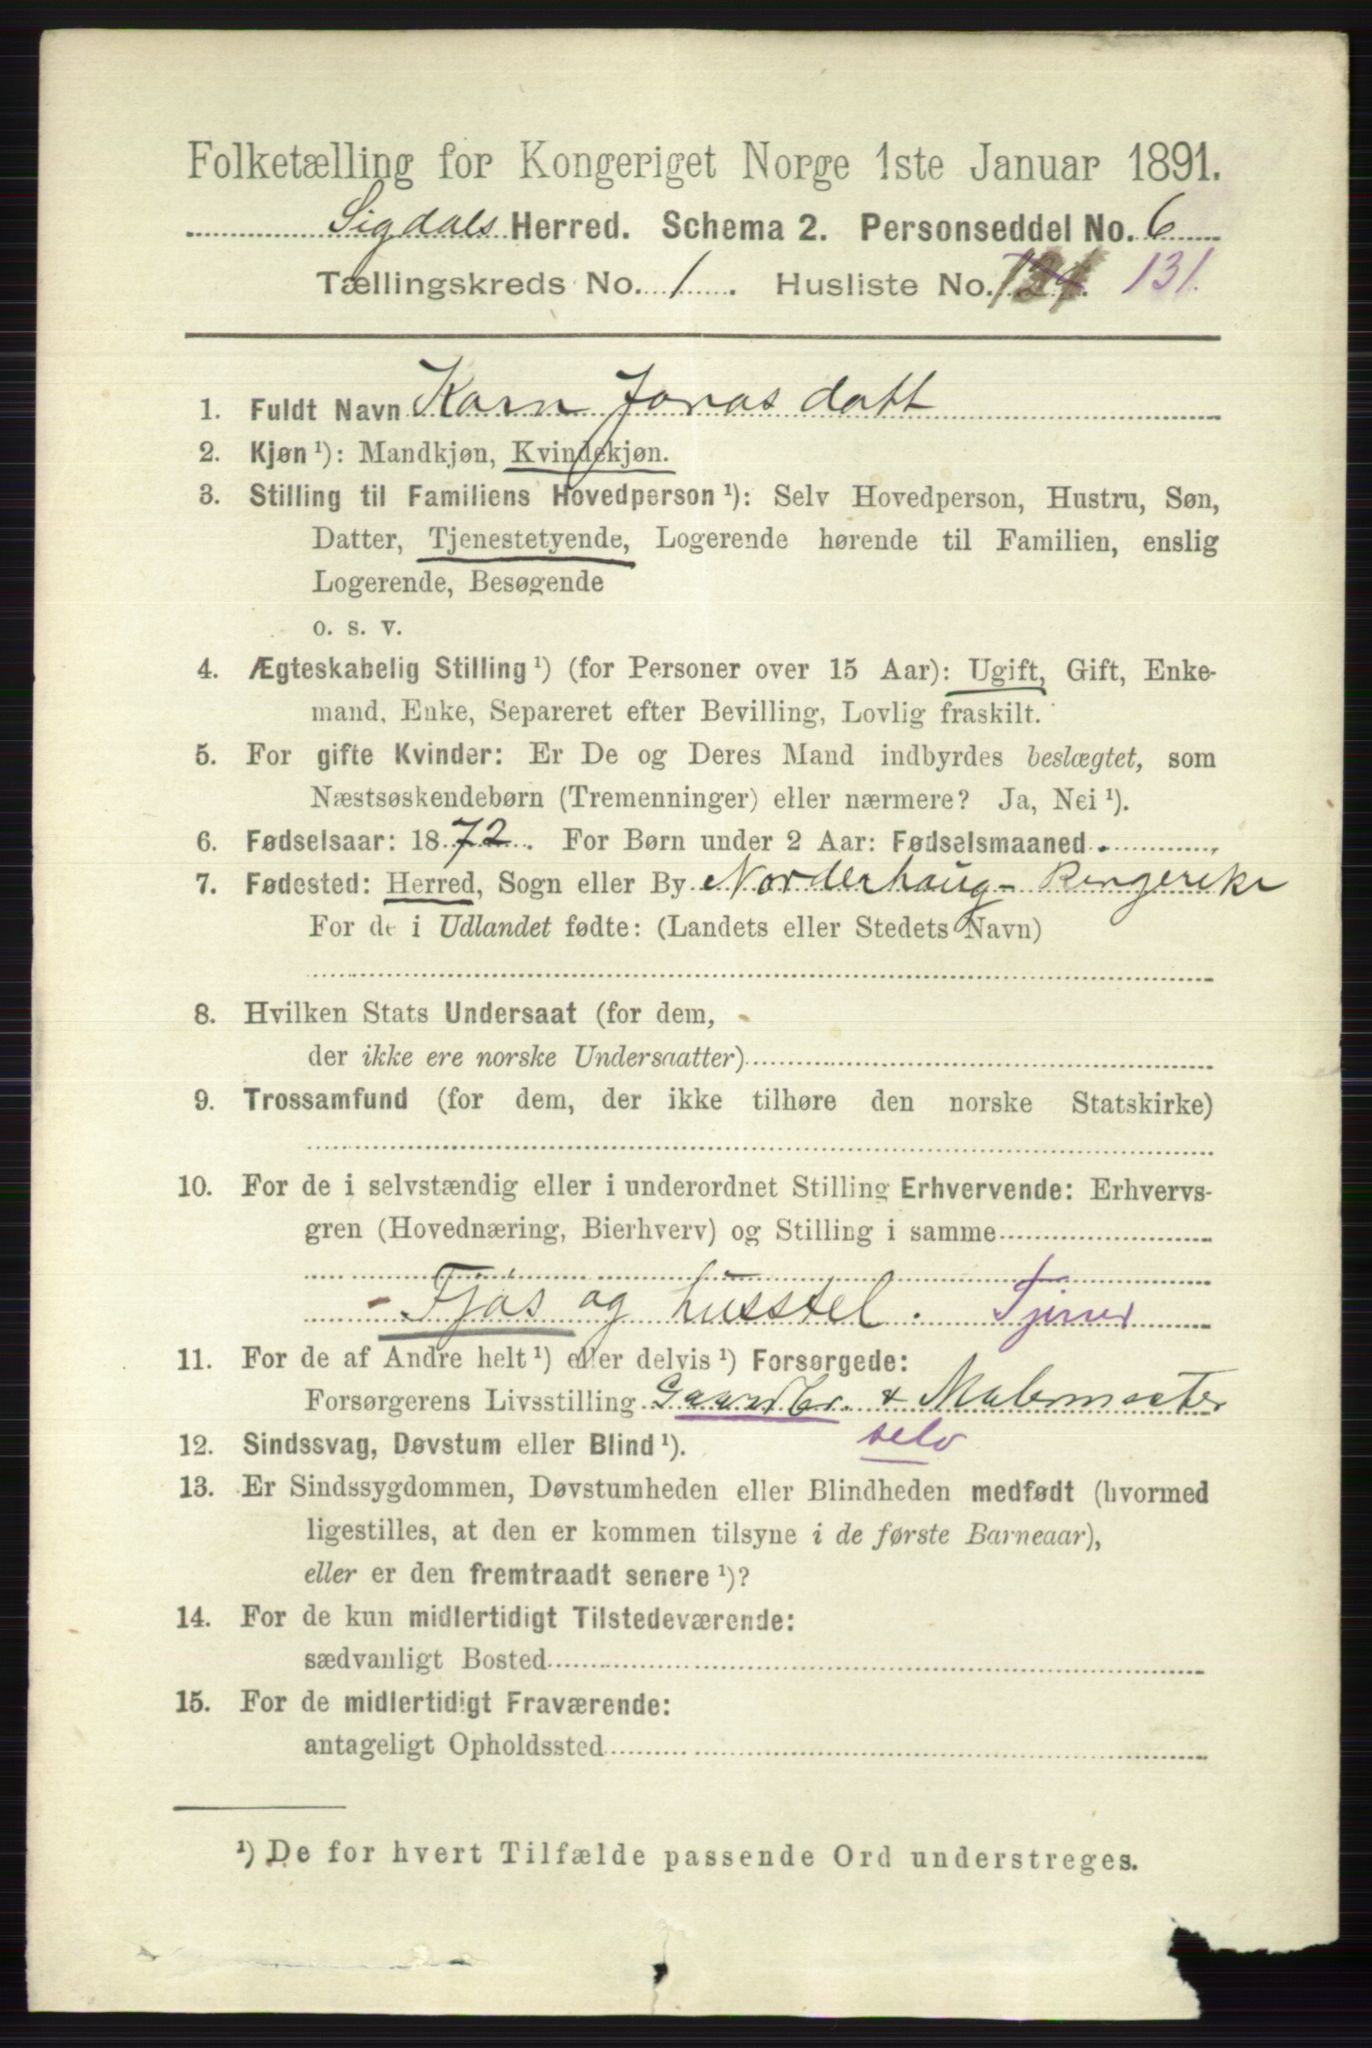 Folketælling for Kongeriget Norge 1ste Januar 1891.
Sigdals Herred. Schema 2. Personseddel No. 6
Tællingskreds No. 1. Husliste No. 131.
1. Fuldt Navn Karn Jonasdatt
2. Kjøn ¹): Mandkjøn, Kvindekjøn.
3. Stilling til Familiens Hovedperson ¹): Selv Hovedperson, Hustru, Søn,
Datter, Tjenestetyende, Logerende hørende til Familien, enslig
Logerende, Besøgende
o. s. v.
4. Ægteskabelig Stilling ¹) (for Personer over 15 Aar): Ugift, Gift, Enke-
mand, Enke, Separeret efter Bevilling, Lovlig fraskilt.
5. For gifte Kvinder: Er De og Deres Mand indbyrdes beslægtet, som
Næstsøskendebørn (Tremenninger) eller nærmere? Ja, Nei ¹).
6. Fødselsaar: 1872. For Børn under 2 Aar: Fødselsmaaned
7. Fødested: Herred, Sogn eller By Norderhaug - Ringerike
For de i Udlandet fødte: (Landets eller Stedets Navn)
8. Hvilken Stats Undersaat (for dem,
der ikke ere norske Undersaatter)
9. Trossamfund (for dem, der ikke tilhøre den norske Statskirke)
10. For de i selvstændig eller i underordnet Stilling Erhvervende: Erhvervs-
gren (Hovednæring, Bierhverv) og Stilling i samme
- Fjøs og husstel. Tjener
11. For de af Andre helt ¹) eller delvis ¹) Forsørgede:
Forsørgerens Livsstilling Gaardbr. & Malermester
selv
12. Sindssvag, Døvstum eller Blind ¹).
13. Er Sindssygdommen, Døvstumheden eller Blindheden medfødt (hvormed
ligestilles, at den er kommen tilsyne i de første Barneaar),
eller er den fremtraadt senere ¹)?
14. For de kun midlertidigt Tilstedeværende:
sædvanligt Bosted
15. For de midlertidigt Fraværende:
antageligt Opholdssted
¹) De for hvert Tilfælde passende Ord understreges.